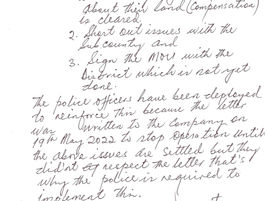 About their land (Compensation)
is cleared
2. Short out issues with the
Subcounty and
3. Sign the MOU with the
District which is not yet
done.
The police officers have been deployed
to reinforce this because the letter
was written to the company on
19th May 2022 to stop operation until
the above issues are settled but they
didn't respect the letter that's
why the police is required to
implement this.